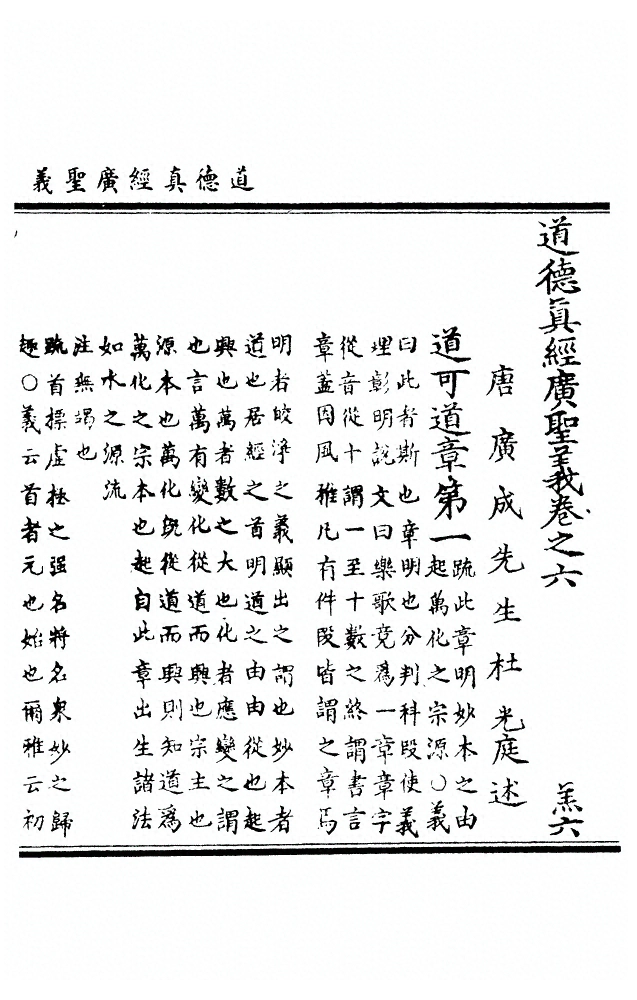 道德真經廣聖義
道德真經廣聖義卷之六 羔六
唐廣成先生杜光庭述
道可道章第一
疏此章明妙本之由
起萬化之宗源○義
曰此者斯也章明也分判科段使義
理彰明說文曰樂歌竟爲一章章字
從音從十謂一至十數之終謂書言
章蓋因風雅凡有件段皆謂之章焉
明者皎淨之義顯出之謂也妙本者
道也居經之首明道之由由從也起
興也萬者數之大也化者應變之謂
也言萬有變化從道而興也宗主也
源本也萬化旣從道而興則知道爲
萬化之宗本也起自此章出生諸法
如水之源流
注無竭也
疏首標虛極之强名將名衆妙之歸
趣○義云首者元也始也爾雅云初